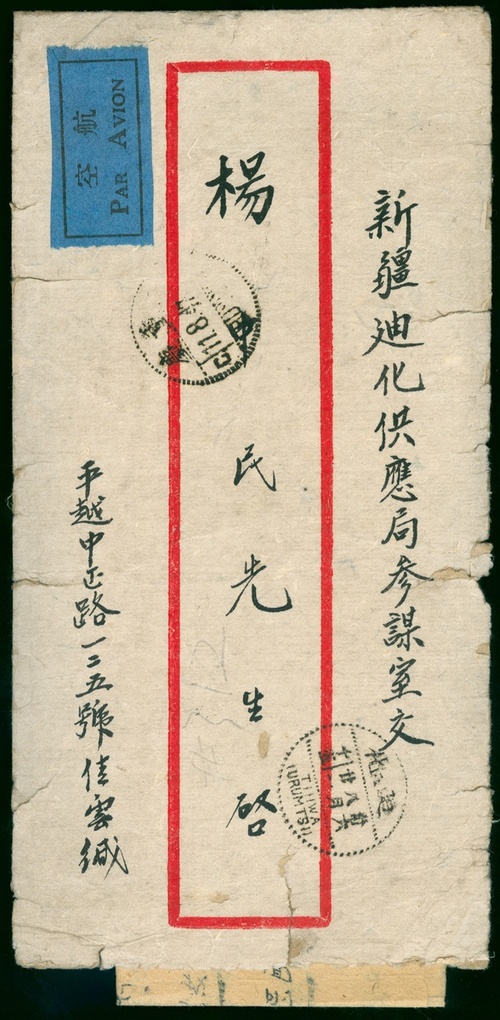 新疆迪化供應局参謀室交
楊民先生啓
平越中正路一二五號佳雲緘
航空
PAR AVION
11.8
TIHWA
(URUMTSI)